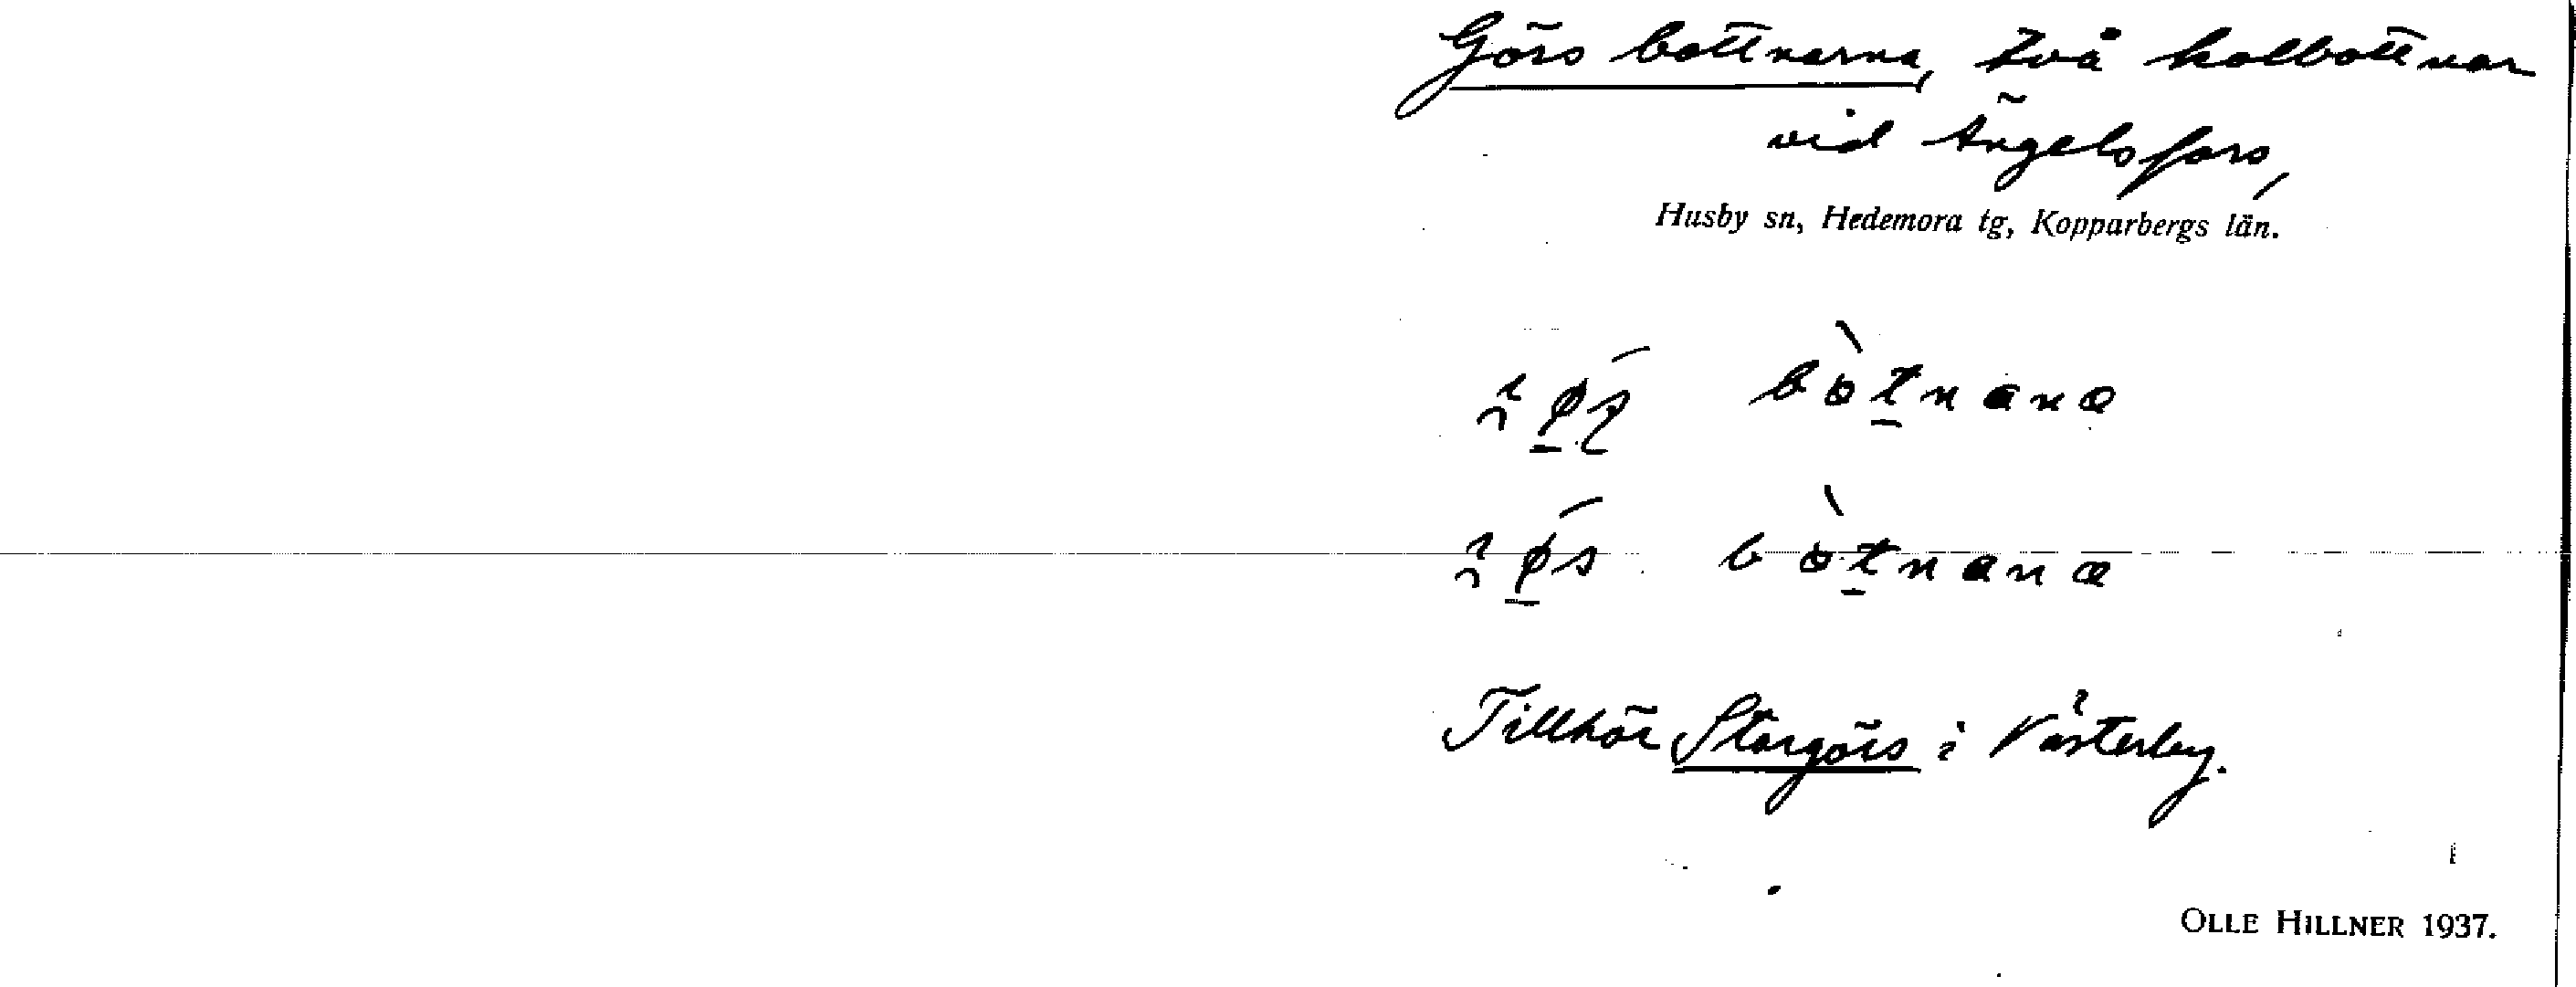 Görs bottnarna, två kolbottnar
vid Ängelsfors,
Husby sn, Hedemora tg, Kopparbergs län.
bòtnana
bòtnana
Tillhör Storgörs i Västerby.
OLLE HILLNER 1937.